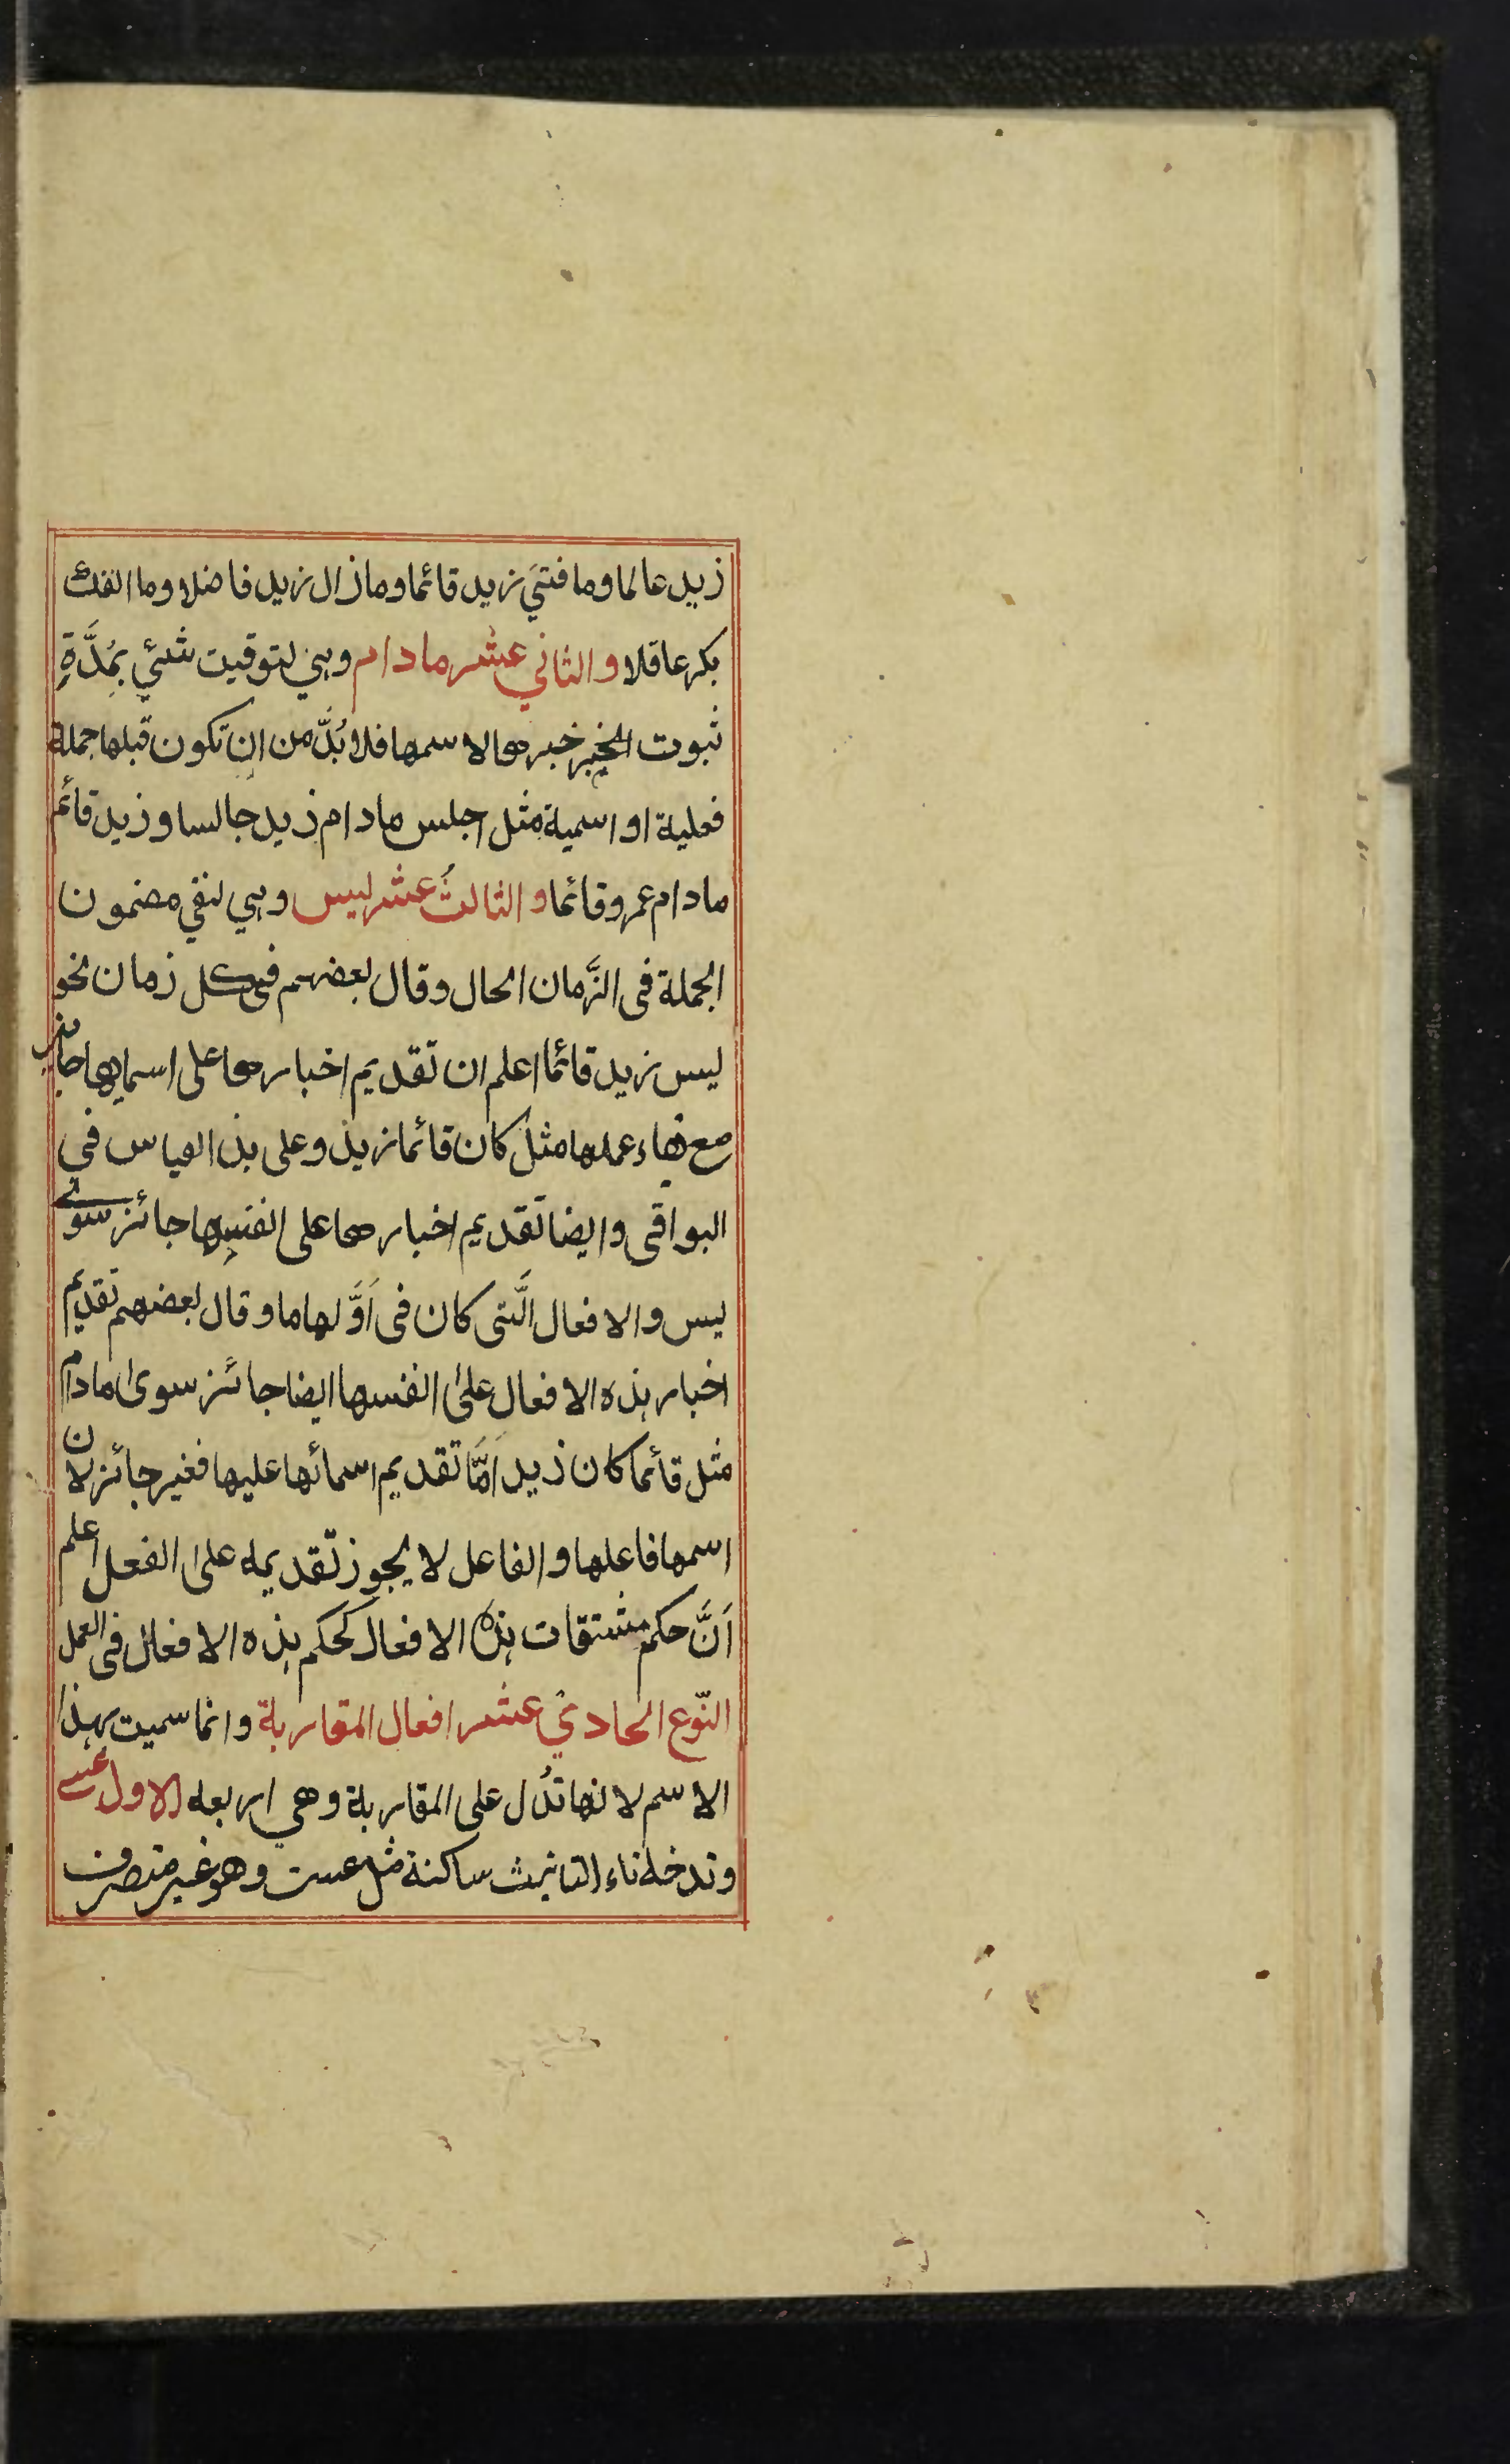 زيد عالما وما فتيَ زيد قائما وما زال زيد فاضلا وما انفك
بكر عاقلا والثاني عشر مادام وهي لتوقيت شئي بمُدَّةِ
ثبوت الخبر خبرها لاسمها فلا بُدَّ من ان تكون قبلها جملة
فعلية او اسمية مثل اجلس مادام زيد جالسا وزيد قائم
مادام عمرو قائما والثالثُ عشر ليس وهي لنفي مضمون
الجملة فى الزَّمان الحال وقال بعضهم فى كل زمان نحو
ليس زيد قائما اعلم ان تقديم اخبارها على اسمايها جايز
مع بقاء عملها مثل كان قائما زيد وعلى هذ القياس في
البواقى وايضا تقديم اخبارها على انفسها جائز سوى
ليس والافعال الَّتى كان فى اَوَّلها ما وقال بعضهم تقديم
اخبار هذه الافعال على انفسها ايضا جائز سوى مادام
مثل قائما كان زيد اَمَّا تقديم اسمائها عليها فغير جائز لان
اسمها فاعلها والفاعل لا يجوز تقديمه على الفعل اعلم
اَنَّ حكم مشتقات هذه الافعال كحكم هذه الافعال فى العمل
النّوع الحادي عشر افعال المقاربة وانما سميت بهذا
الاسم لانها تدُل على المقاربة وهي اربعه الاول عسى
وتدخله تاء التانيث ساكنة مثل عست وهو غير متصرف